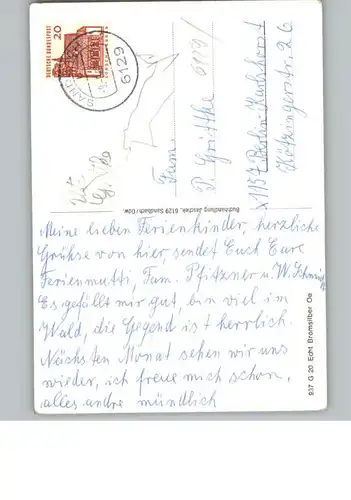 20
DEUTSCHE BUNDESPOST
SAND
6129
Fam.
P. Grittke
x1157 Berlin-Karlshorst
Kötzingerstr. 26
Buchhandlung Jaschek, 6129 Sandbach/Odw.
Meine lieben Ferienkinder, herzliche
Grühse von hier, sendet Euch Eure
Ferienmutti, Fam. Pfitzner u. W. Schmidt
Es gefällt mir gut, bin viel im
Wald, die Gegend ist herrlich.
Nächsten Monat sehen wir uns
wieder, ich freue mich schon,
alles andre mündlich
937 G 20 Echt Bromsilber Oe